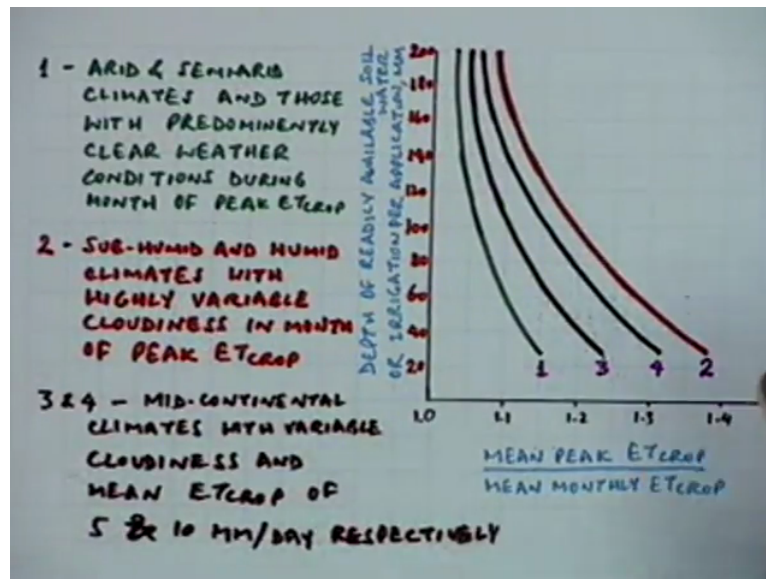 1 - ARID & SEMIARID
CLIMATES AND THOSE
WITH PREDOMINENTLY
CLEAR WEATHER
CONDITIONS DURING
MONTH OF PEAK ETCROP
2 - SUB-HUMID AND HUMID
CLIMATES WITH
HIGHLY VARIABLE
CLOUDINESS IN MONTH
OF PEAK ETCROP
3 & 4 - MID-CONTINENTAL
CLIMATES WITH VARIABLE
CLOUDINESS AND
MEAN ETCROP OF
5 & 10 MM/DAY RESPECTIVELY
DEPTH OF READILY AVAILABLE SOIL
WATER
OR IRRIGATION PER APPLICATION, MM
200
180
160
140
120
100
80
60
40
20
1 3 4 2
1.0 1.1 1.2 1.3 1.4
MEAN PEAK ETCROP
MEAN MONTHLY ETCROP